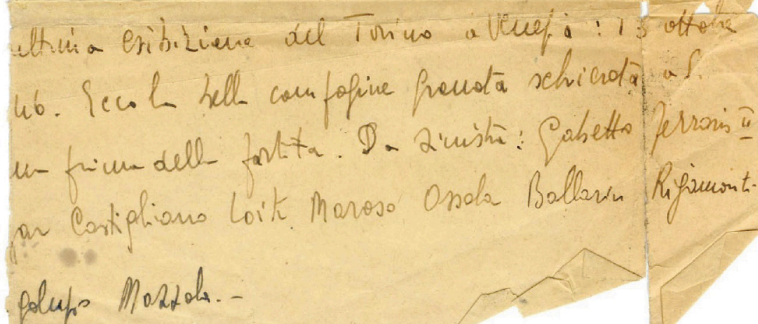 ultima esibizione del Torino a Venezia : 13 ottobre
46. Ecco la bella compagine granata schierata a S.
na prima della partita. Da sinistra: Gabetto Ferraris II
Castigliano Loik Maroso Ossola Ballarin Rigamonti
Mazzola.-